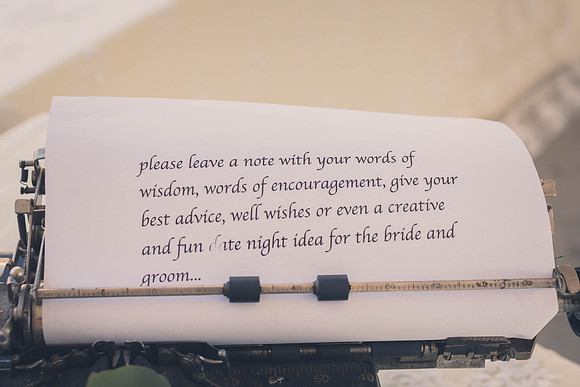 please leave a note with your words of
wisdom, words of encouragement, give your
best advice, well wishes or even a creative
and fun date night idea for the bride and
groom...